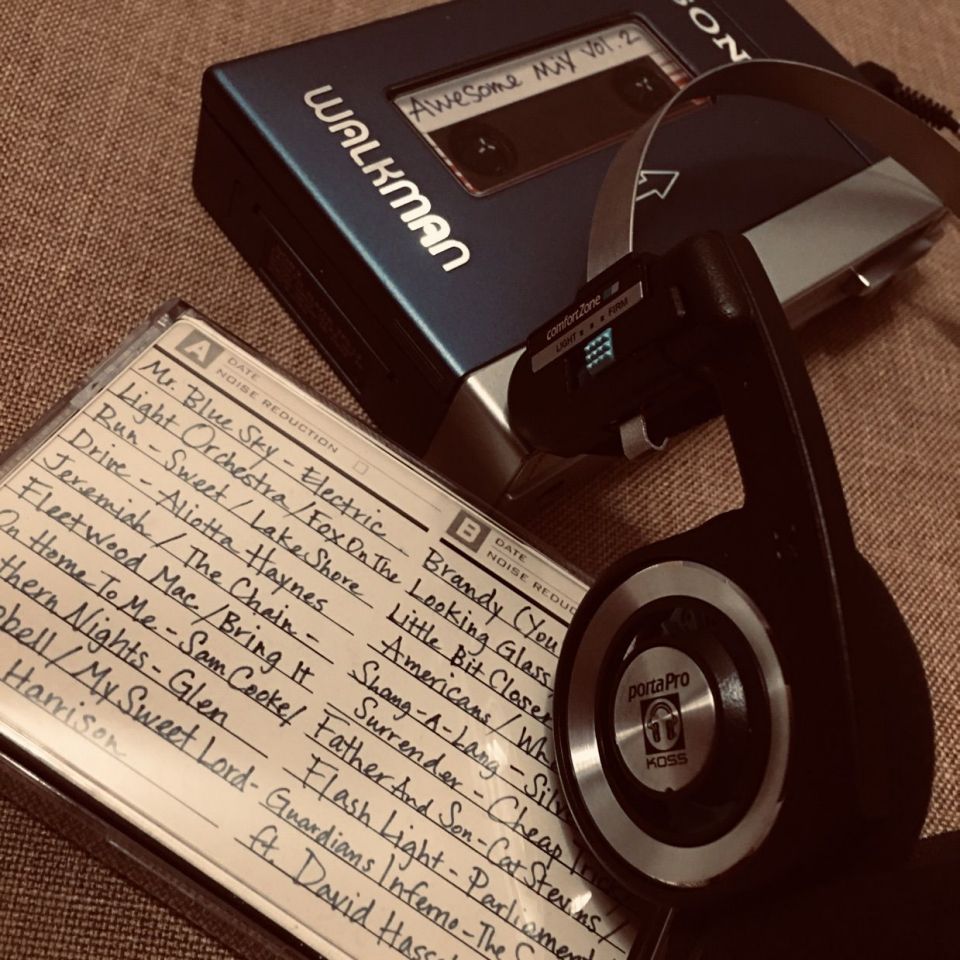 SONY
Awesome Mix Vol. 2
WALKMAN
comfortZone
LIGHT FIRM
portaPro
KOSS
A
DATE
NOISE REDUCTION
Mr. Blue Sky - Electric
Light Orchestra / Fox On The
Run - Sweet / Lake Shore
Drive - Aliotta Haynes
Jeremiah / The Chain -
Fleetwood Mac / Bring It
On Home To Me - Sam Cooke /
thern Nights - Glen
pbell / My Sweet Lord -
Harrison
B
DATE
NOISE REDUC
Brandy (You
Looking Glass
Little Bit Closer
Americans / Wh
Shang-A-Lang - Silv
Surrender - Cheap Tric
Father And Son - Cat Stevens /
Flash Light - Parliament
Guardians Inferno - The S
ft. David Hass